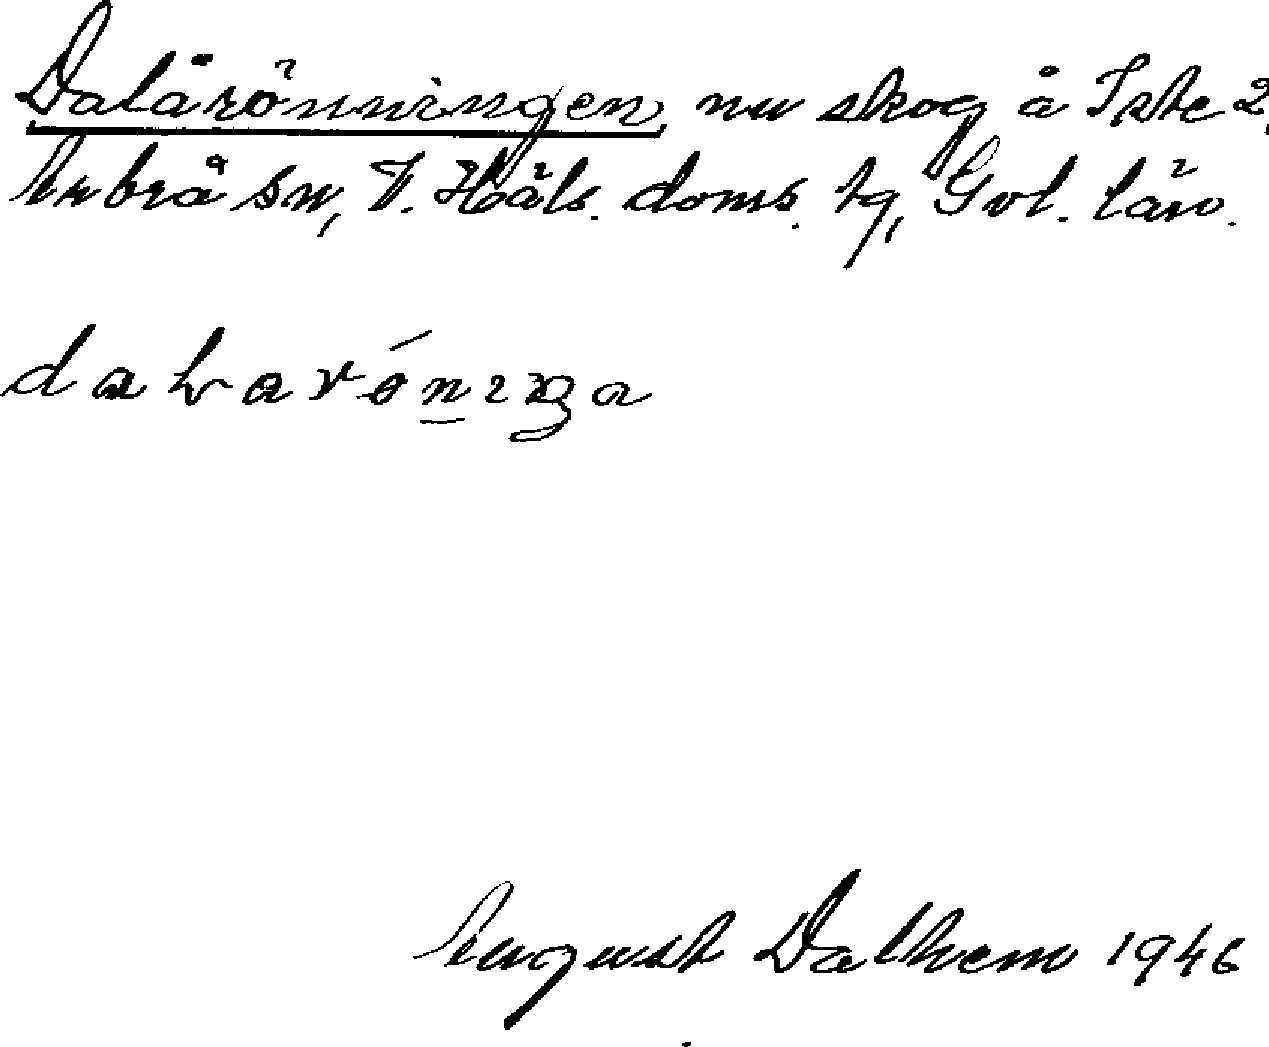 Dalårönningen, nu skog å Iste 2,
Arbrå sn, V. Häls. doms. tg, Gvl. län.
dalaróniŋa
August Dalhem 1946